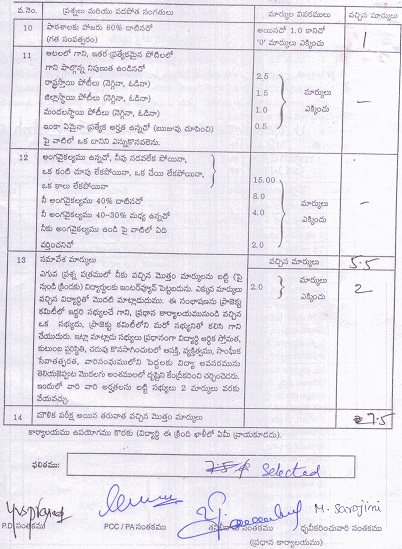 వ.నెం. ప్రశ్నలు మరియు వడపోత సంగతులు మార్కుల వివరములు వచ్చిన మార్కులు
10 పాఠశాలకు హాజరు 80% దాటినచో అయినచో 1.0 కానిచో 1
(గత సంవత్సరం) '0' మార్కులు ఎక్కించు
11 ఆటలలో గాని, ఇతర ప్రత్యేకమైన పోటీలలో
గాని పాల్గొన్న నిపుణత ఉండినచో 2.5
రాష్ట్రస్థాయి పోటీలు (నెగ్గినా, ఓడినా) 1.5 మార్కులు –
జిల్లాస్థాయి పోటీలు (నెగ్గినా, ఓడినా) 1.0 ఎక్కించు
మండలస్థాయి పోటీలు (నెగ్గినా, ఓడినా) 0.5
ఇంకా ఏమైనా ప్రత్యేక అర్హత ఉన్నచో (ఋజువు చూపించి)
పై వాటిలో ఒక దానిని ఎన్నుకొనవలెను.
12 అంగవైకల్యము ఉన్నదో, నీవు నడవలేక పోయినా,
ఒక కంటి చూపు లేకపోయినా, ఒక చేయి లేకపోయినా, 15.00
ఒక కాలు లేకపోయినా 8.0 మార్కులు –
నీ అంగవైకల్యము 40% దాటినచో 4.0 ఎక్కించు
నీ అంగవైకల్యము 40-30% మధ్య ఉన్నచో
నీకు అంగవైకల్యము ఉండి పై వాటిలో ఏది 2.0
వర్తించనిచో
13 సమావేశ మార్కులు వచ్చిన మార్కులు 5.5
ఎగువ ప్రశ్న పత్రములో నీకు వచ్చిన మొత్తం మార్కులను బట్టి (పై 2.0 మార్కులు 2
నుండి క్రిందకు) విద్యార్థులకు ఇంటర్వ్యూనే పెట్టబడును. ఎక్కువ మార్కులు ఎక్కించు
వచ్చిన విద్యార్థితో మొదటి మాట్లాడుదుము. ఈ సంభాషణను ప్రాజెక్టు
కమిటీలో ఇద్దరి సభ్యులచే గాని, ప్రధాన కార్యాలయమునుండి వచ్చిన
ఒక సభ్యుడు, ప్రాజెక్టు కమిటీలోని మరో సభ్యునితో కలిసి గాని
చేయుదురు. ఇట్లా మాట్లాడు సభ్యులు ప్రధానంగా విద్యార్థి ఆర్థిక స్థోమత,
కుటుంబ పరిస్థితి, చదువు కొనసాగించుటలో ఆసక్తి, వ్యక్తిత్వము, సాంఘిక
సేవాతత్పరత, వారిసంఘములోని పెద్దలకు విద్యా అవసరమును
తెలియజెప్పుట మొదలగు అంశములలో దృష్టిని కేంద్రీకరించి చర్చించెదరు.
ఇందులో వారి వారి అర్హతలను బట్టి సభ్యులు 2 మార్కులు వరకు
వేయవచ్చు.
14 మౌళిక పరీక్ష అయిన తరువాత వచ్చిన మొత్తం మార్కులు 7.5
కార్యాలయము ఉపయోగము కొరకు (విద్యార్థి ఈ క్రింది ఖాళీలో ఏమీ వ్రాయకూడదు).
ఫలితము: Selected
M. Sarojini
P.D. సంతకము PCC / PA సంతకము ధృవీకరించువారి సంతకము
(ప్రధాన కార్యాలయం)